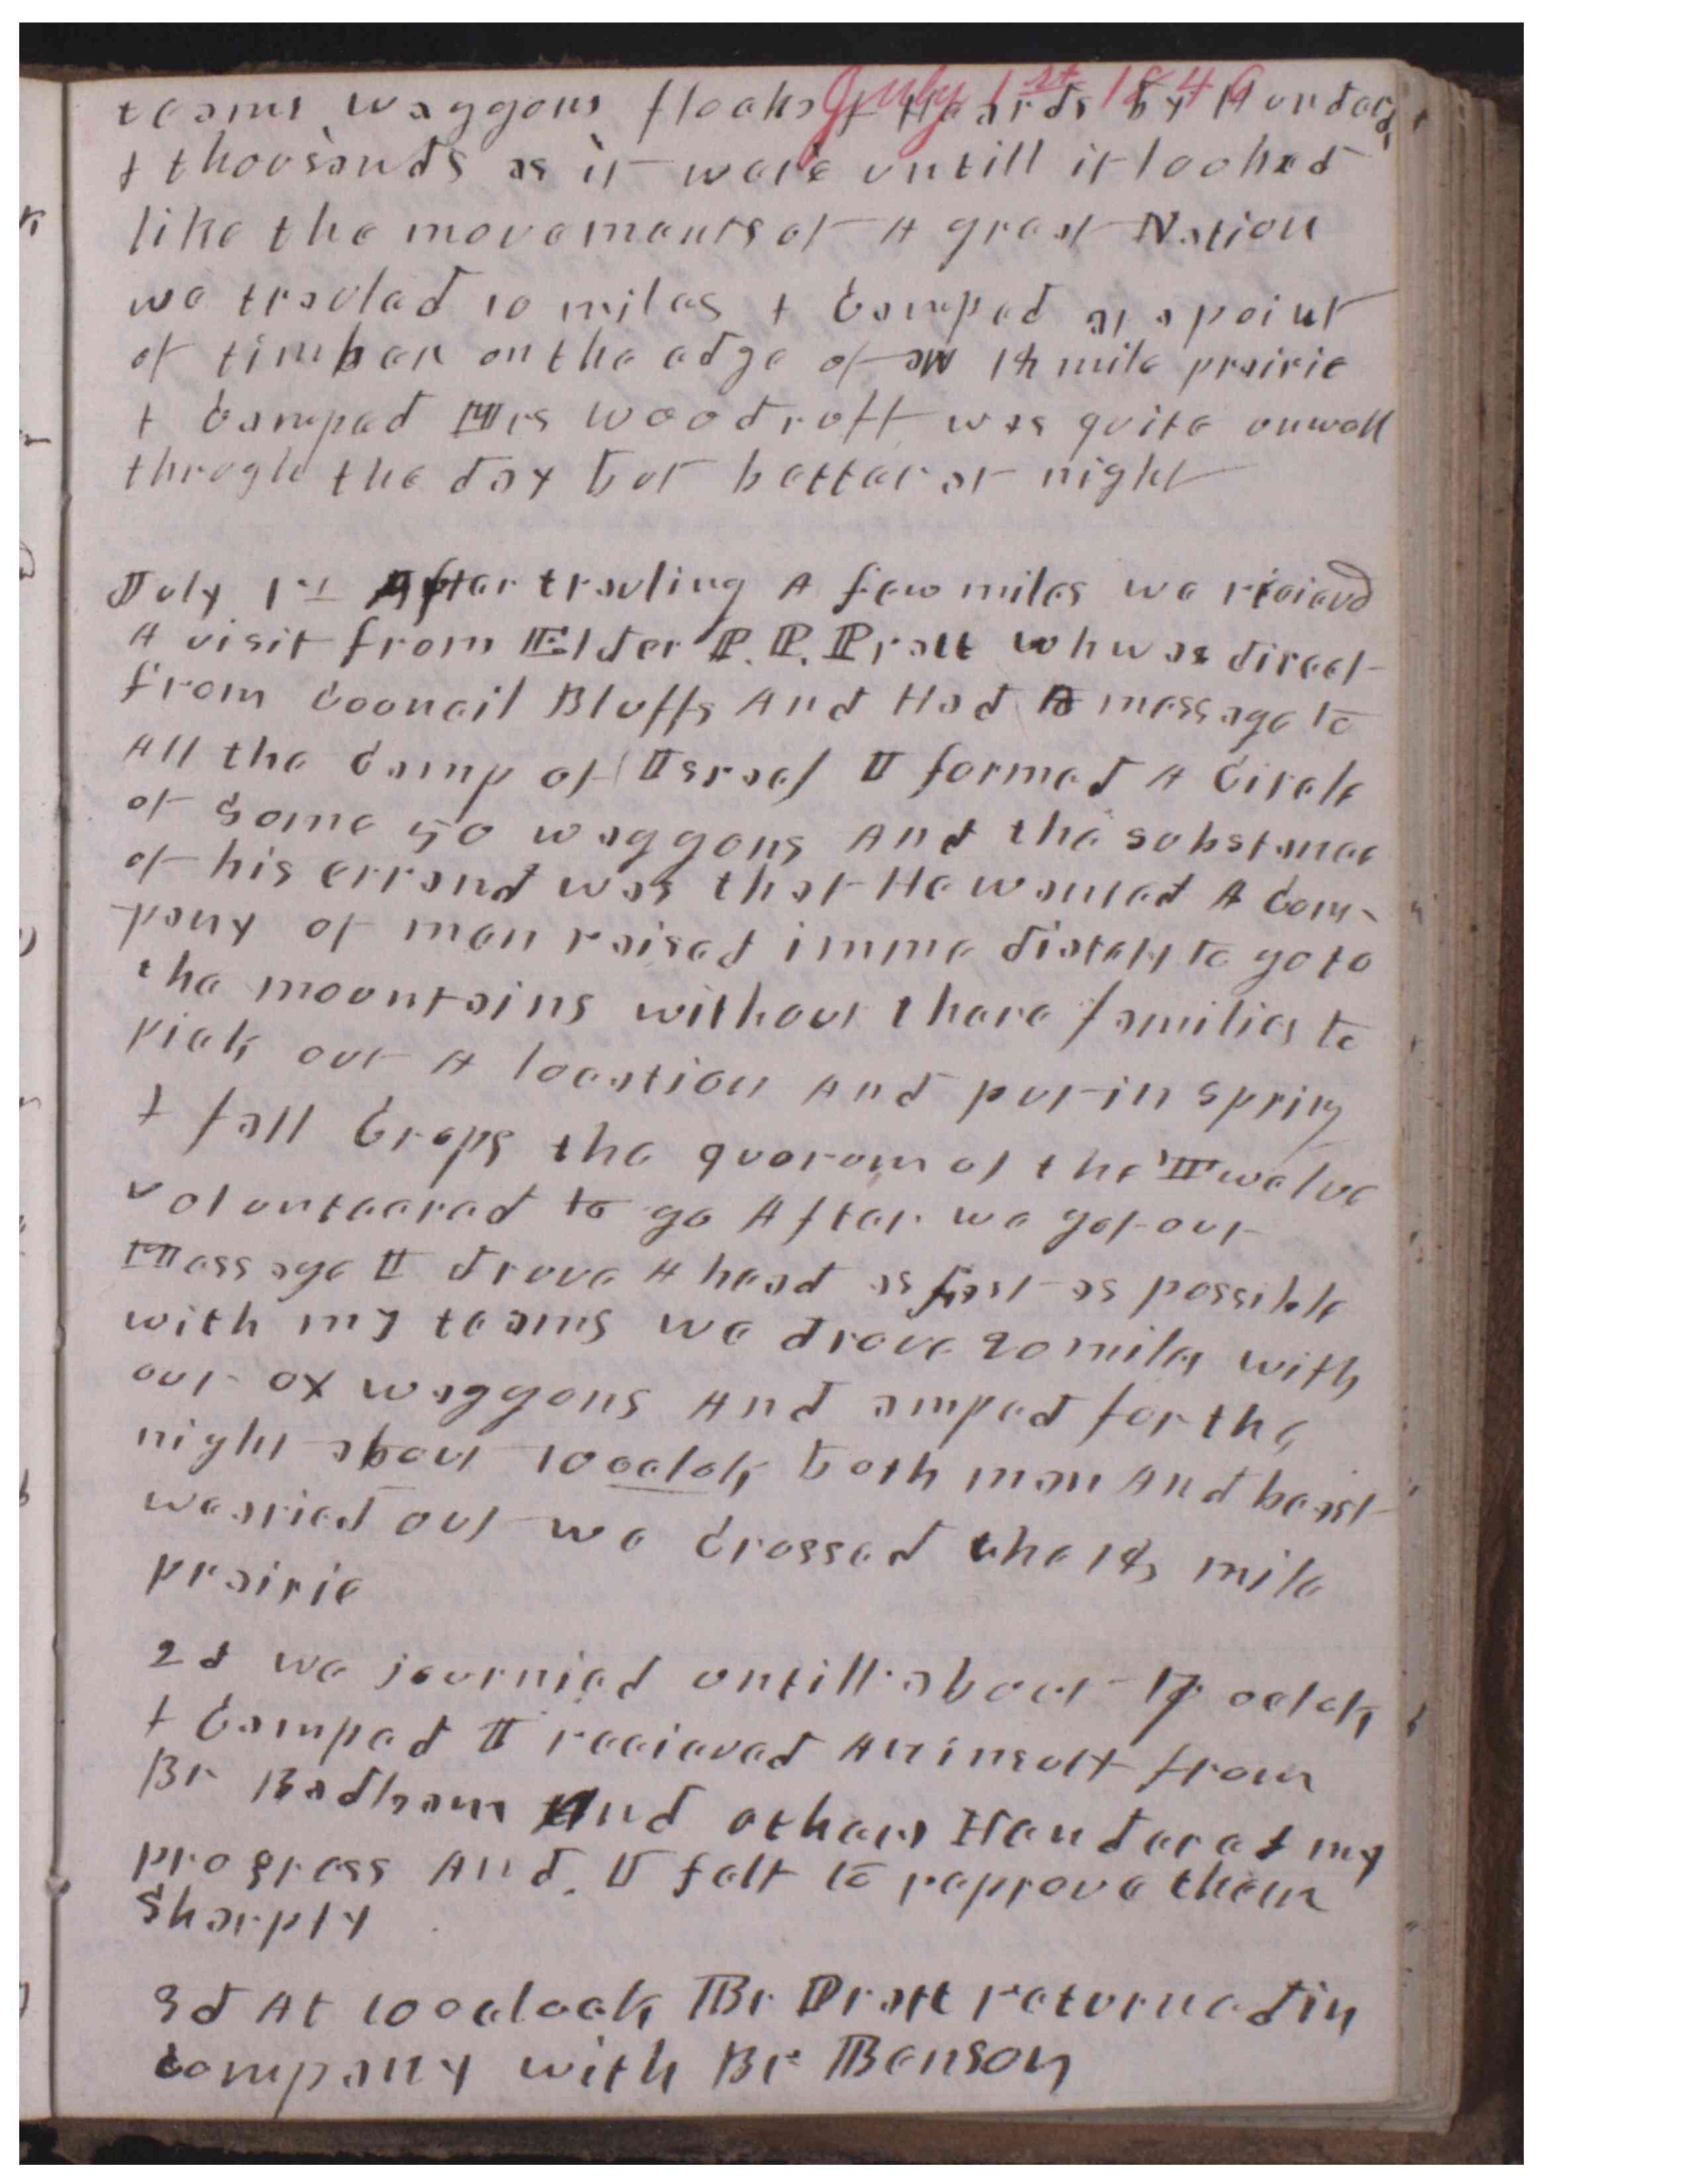 July 1st 1846
teams waggons flocks & Heards by Hundreds
& thousands as it ware untill it looked
like the movements of A great Nation
we travled 10 miles & Camped at a point
of timber on the edge of an 18 mile prairie
& Camped Mrs Woodruff was quite unwell
through the day but better at night
July 1st After travling A few miles we recieved
A visit from Elder P. P. Pratt who was direct
from Council Bluffs And Had A message to
All the Camp of Israel I formed A Circle
of some 50 waggons And the substance
of his errand was that He wanted A Com-
pany of men raised immediately to go to
the mountains without there families to
pick out A location And put in spring
& fall Crops the quorum of the Twelve
volunteered to go After we got our
Message I drove Ahead as fast as possible
with my teams we drove 20 miles with
our ox waggons And amped for the
night about 10 oclok both man And beast
wearied out we Crossed the 18 mile
prairie
2d we journied untill about 12 oclok
& Camped I recieved An insult from
Br Badham And others Hendered my
progress And I felt to reprove them
Sharply
3d At 10 oclock Br Pratt returned in
company with Br Benson